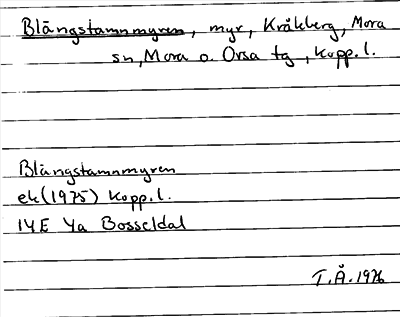 Blängstammmyren, myr, Kråkberg, Mora
sn, Mora o. Orsa tg, Kopp. l.
Blängstammmyren
ek (1975) Kopp. l.
14E 4a Bosseldal
T.Å. 1976